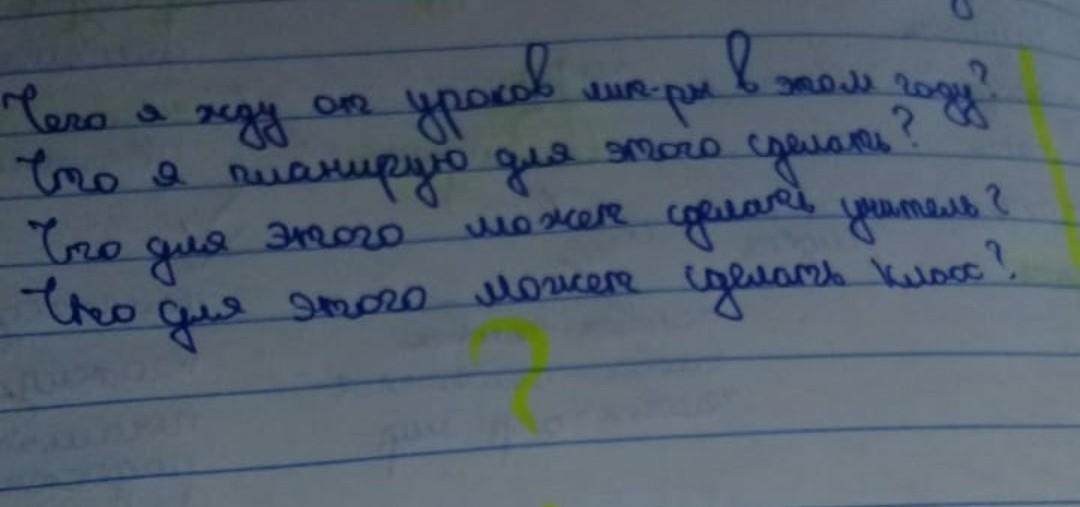 Чего я жду от уроков лит-ры в этом году?
Что я планирую для этого сделать?
Что для этого может сделать учитель?
Что для этого может сделать класс?
?